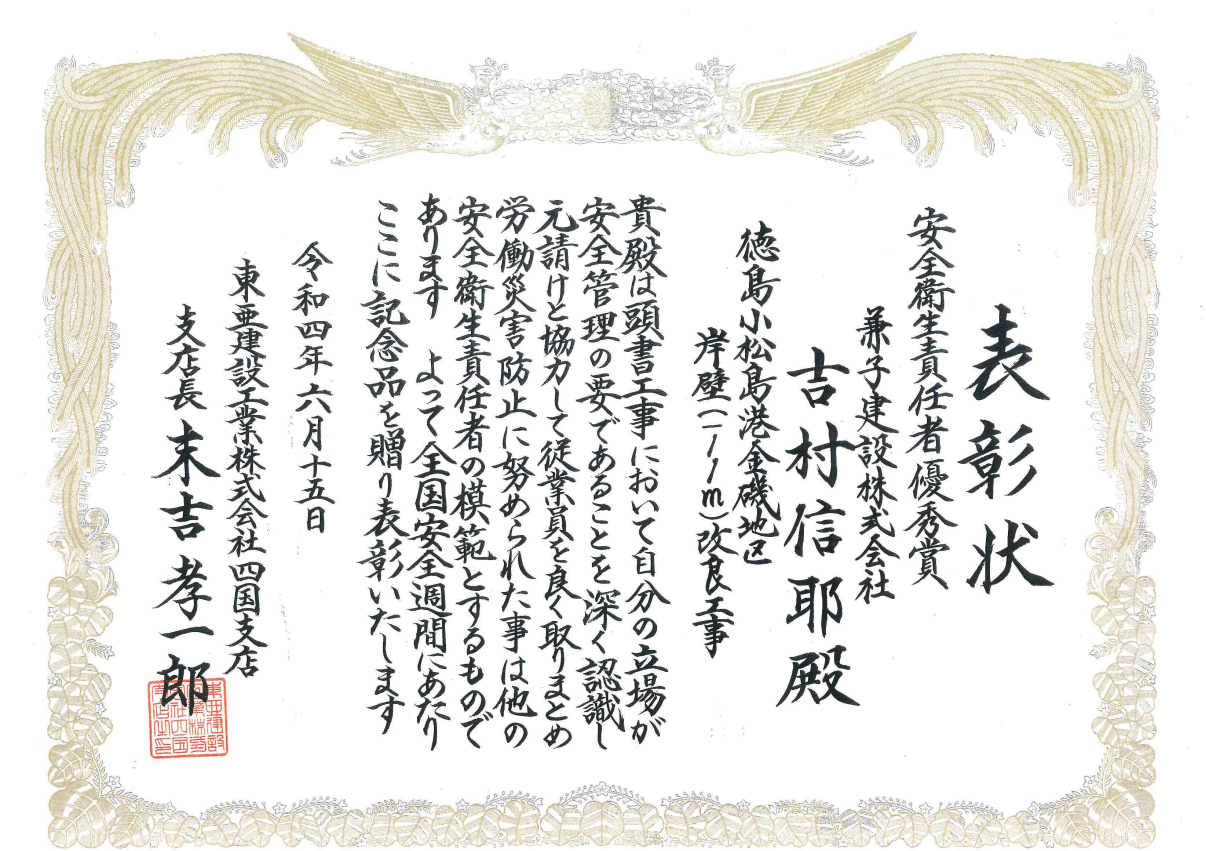 表彰状
安全衛生責任者優秀賞
兼子建設株式会社
吉村信耶殿
徳島小松島港金磯地区
岸壁(-11m)改良工事
貴殿は頭書工事において自分の立場が
安全管理の要であることを深く認識し
元請けと協力して従業員を良く取りまとめ
労働災害防止に努められた事は他の
安全衛生責任者の模範とするもので
あります よって全国安全週間にあたり
ここに記念品を贈り表彰いたします
令和四年六月十五日
東亜建設工業株式会社四国支店
支店長 末吉孝一郎